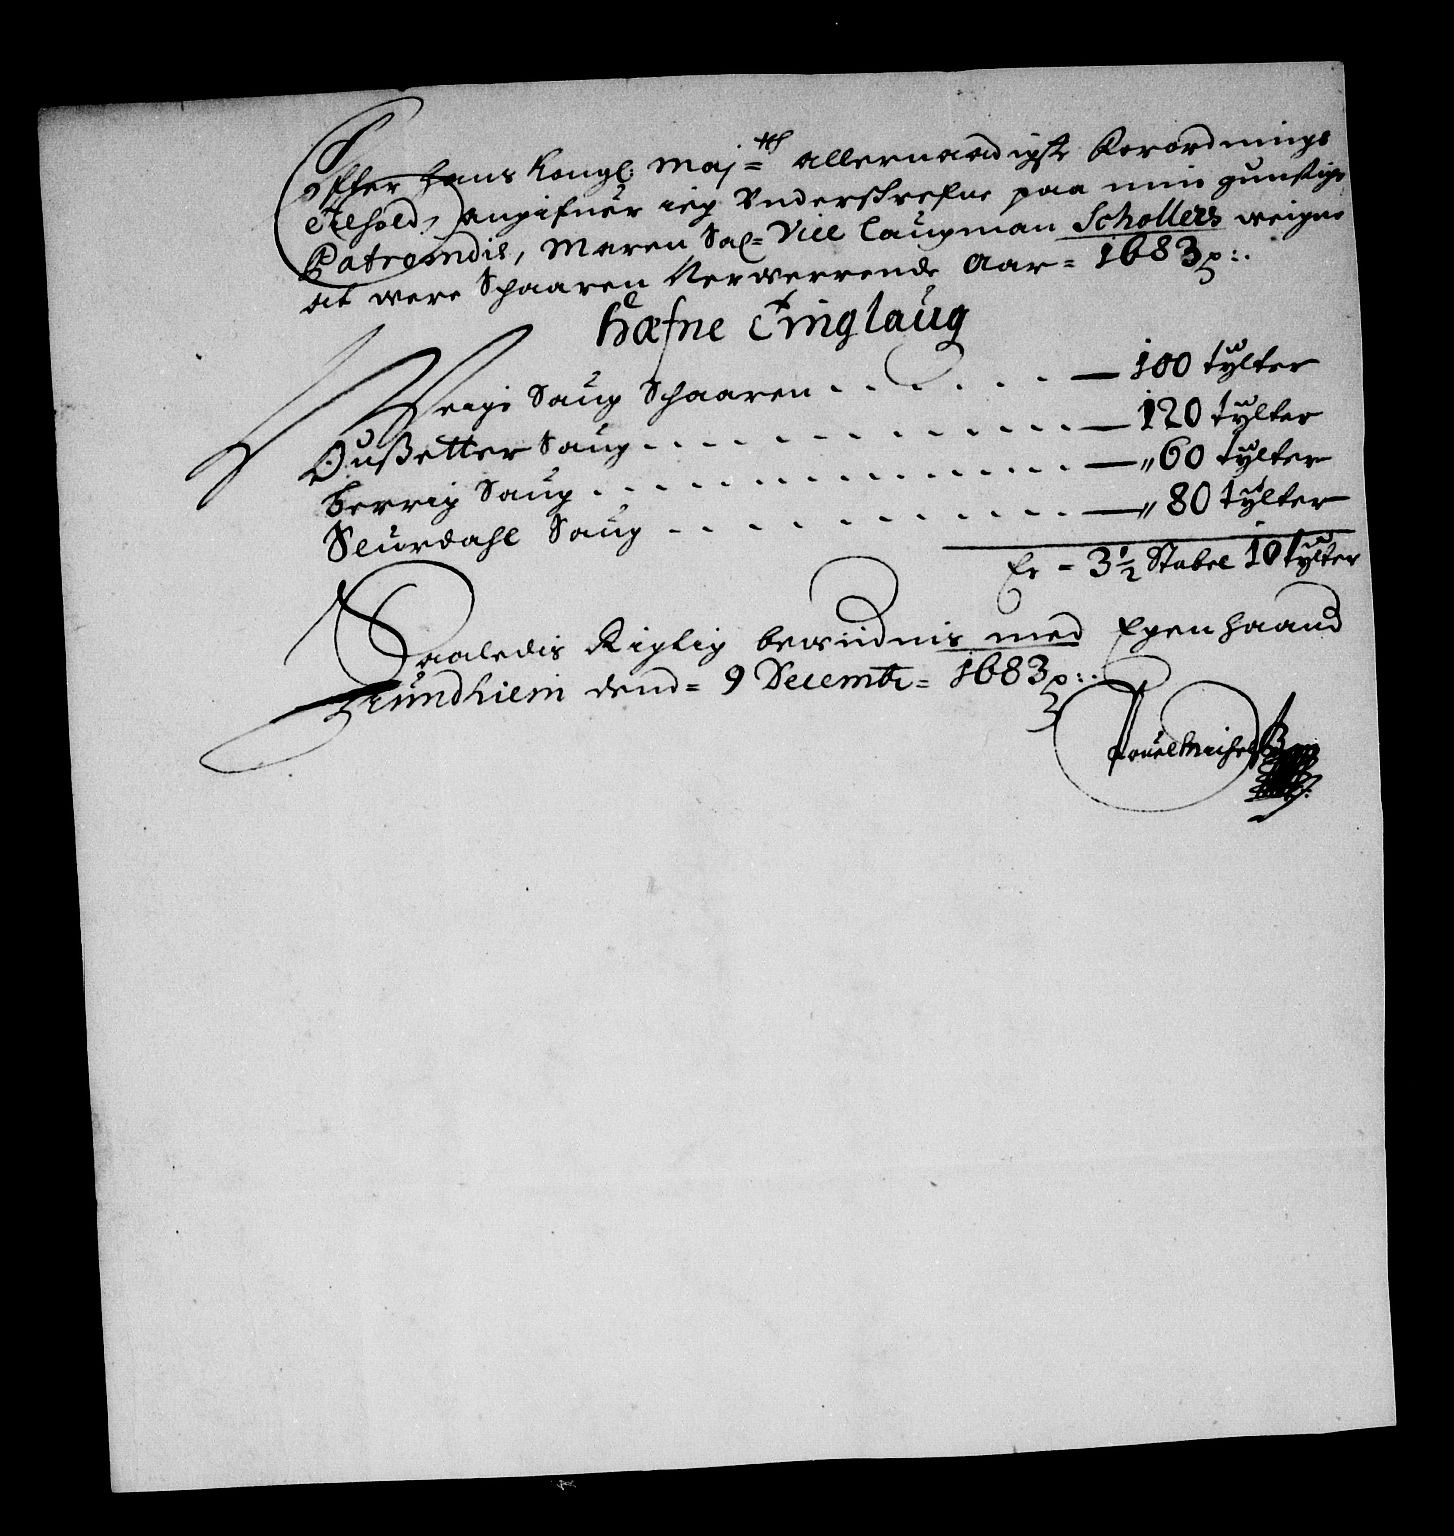 Effter hans Kongl: Maj=tts allernaadigste Forordnings
Jnhold, angifuer ieg Underschrefne paa min gunstige
Patrondis, Maren Sal= Vice Laugman Schøllers weigne
at were Schaaren Nerwerrende Aar= 1683 p:.
Hæfne Tinglaug
Veigs Saug Schaaren - - - - - - — 100 tylter
Oußetter Saug - - - - - - — 120 tylter
Berrig Saug - - - - - - — „60 tylter
Slurdahl Saug - - - - - - — „80 tylter
Er = 3½ Stabel 10 tylter
Saaledis Rigtig bewidnis med Egen haand
Trundhiem dend= 9 Decembr= 1683 p:.
Pouel Michelßen